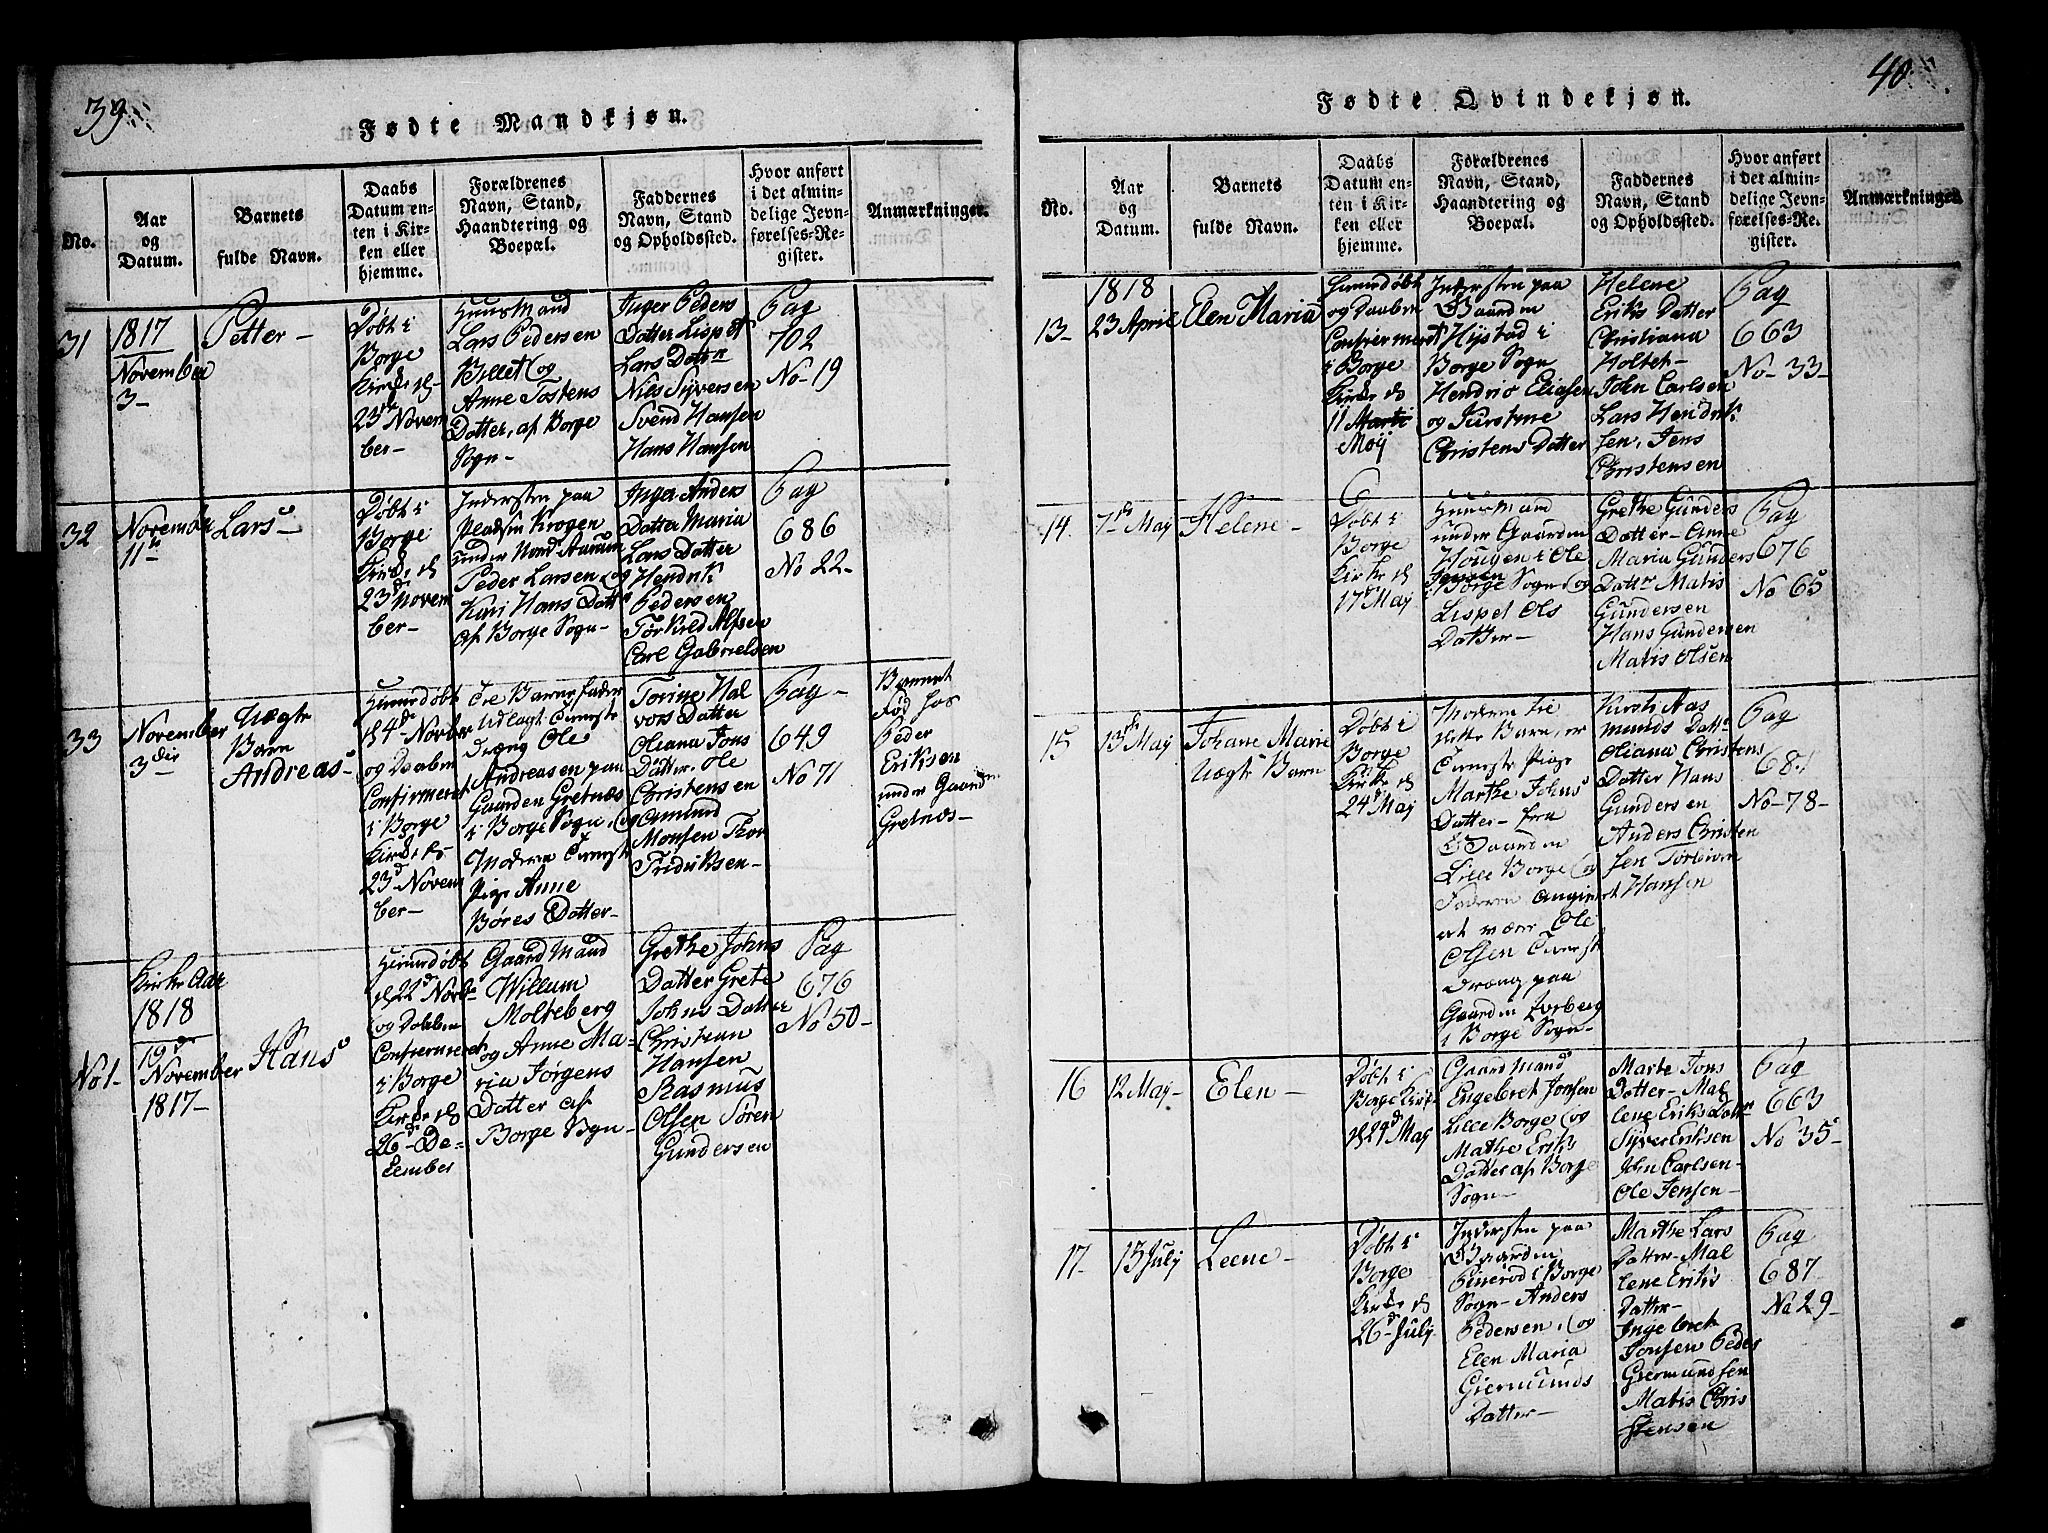 39
Fødte Mandkjøn.
No.
Aar
og
Datum.
Barnets
fulde Navn.
Daabs
Datum en-
ten i Kir-
ken eller
hjemme.
Forældrenes
Navn, Stand,
Haandtering og
Boepæl.
Faddernes
Navn, Stand
og Opholdssted.
Hvor anført
i det almin-
delige Jevn-
førelses-Re-
gister.
Anmærkninger.
31
1817
November
3-
Petter-
Døbt i
Borge
Kirke d
23d Novem
ber-
Huusmand
Lars Pedersen
Anne Tostens
Datter, af Borge
Sogn-
Inger Peders
Datter Lispet
Lars Datter
Nils Syversen
Svend Hansen
Hans Hansen
Pag
702
No-19
32
November
11te
Lars
Døbt i
Borge
Kirke d
23d Novem
ber-
Indersten paa
Pladsen Krogen
under Nord Aarum
Peder Larsen og
Kari Hans Datter
af Borge Sogn-
Inger Anders
Datter Maria
Lars Datter
Hendrik
Pedersen
Carl Gabrielsen
Pag
686
No 22-
33
November
3die
Uægte
Barn
Andreas
Hiemdøbt
d 4de Novber
og Daaben
Confirmeret
i Borge
Kirke d
23d Novem
ber-
udlagt Tieneste
Dreng Ole
Andreasen paa
Gaarden Gretnæs
i Borge Sogn, og
Moderen Tieneste
Pige Anne
Børes Datter-
Torine Hal
vors Datter
Oliana Jons
Datter, Ole
Christensen
Amund
Monsen Thor
Fridriksen-
Pag-
649
No 71
Barnet
Fød hos
Peder
Eriksen
under Gaarden
Gretnæs-
No 1-
Kirke Aar
1818
19de
November
1817-
Hans
Hiemdøbt
d 22d Novbr
og Dobben
Confirmeret
i Borge
Kirke d
26de De=
cember
Gaardmand
Willum
Molteberg
og Anne Ma-
ria Jørgens
Datter af
Borge Sogn-
Grethe Johns
Datter Grete
Johns Datter
Christian
Hansen
Rasmus
Olsen Søren
Gundersen
Pag
676
No 50-
40
Fødte Qvindekjøn.
No.
Aar
og
Datum.
Barnets
fulde Navn.
Daabs
Datum en-
ten i Kir-
ken eller
hjemme.
Forældrenes
Navn, Stand,
Haandtering og
Boepæl.
Faddernes
Navn, Stand
og Opholdssted.
Hvor anført
i det almin-
delige Jevn-
førelses-Re-
gister.
Anmærkninger.
13-
1818
23 April
Elen Maria
Hiemdøbt
og Daaben
Confirmeret
i Borge
Kirke d
11 Marti
Moij
Indersten paa
Gaarden
Hystad i
Borge Sogn
Hendrich Eliasen
og Kirstine
Christens Datter
Helene
Eriks Datter
Christiana
Holtet-
John Carlsen
Lars Hendrik
sen, Jens
Christensen
Pag
663
No-33-
14-
7de May
Helene-
Døbt i
Borge
Kirke d
17de May
Huusmand
under Gaarden
Hougen i Ole
Jensen
Borge Sogn og
Lispet Ols
Datter-
Grethe Gunders
Datter-Anne
Maria Gunders
Datter Matis
Gundersen
Hans Gundersen
Matis Olsen
Pag
676
No 65
15
13de May
Johane Marie
Uægte Barn
Døbt i
Borge
Kirke d
24d May
Moderen til
dette Barn, er
Tieneste Pige
Marthe Johns
Datter- fra
Gaarden
Lille Borge og
Faderen Angivet
at være Ole
Olsen Tieneste
Dræng paa
Gaarden
i Borge Sogn-
Kirsti Aas
munds Datter
Oliana Christens
Datter Hans
Gundersen
Anders Christen
sen Torbiørn
Hansen
Pag
681
No-78-
16
12 May-
Elen-
Døbt i
Borge Kirke
d 24d May
Gaardmand
Engebret Jonsen
Lille Borge og
Mathe Eriks
Datter af Borge
Sogn-
Marte Jons
Datter-Mal
lene Eriks Datter
Syver Eriksen
John Carlsen-
Ole Jensen-
Pag
663
No 35-
17-
13 July
Leene-
Døbt i
Borge
Kirke d
26d July
Indersten paa
Gaarden
i Borge
Sogn-Anders
Pedersen, og
Elen Maria
Giermunds
Datter-
Marthe Lars
Datter-Mal
lene Eriks
Datter-
Ingebret
Jonsen Peder
Giermundsen
Matis Chris
stensen
Pag
687
No 29-